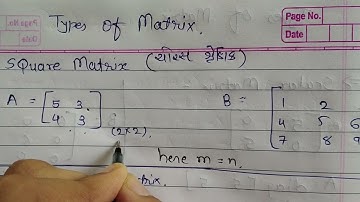 Types of Matrix.
Page No.
Date
Square Matrix (चोरस श्रेणिक)
A = [5 3
4 3] (2×2).
B = [1 2
4 5 6
7 8 9
here m = n.